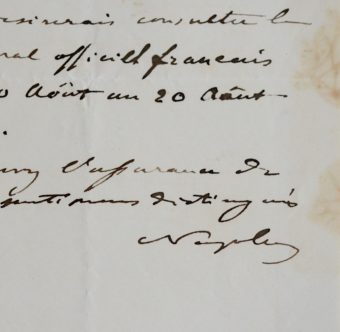 sirerais consulter le
nal officiel français
0 Août au 20 Août
.
l'assurance de
sentimens distingués